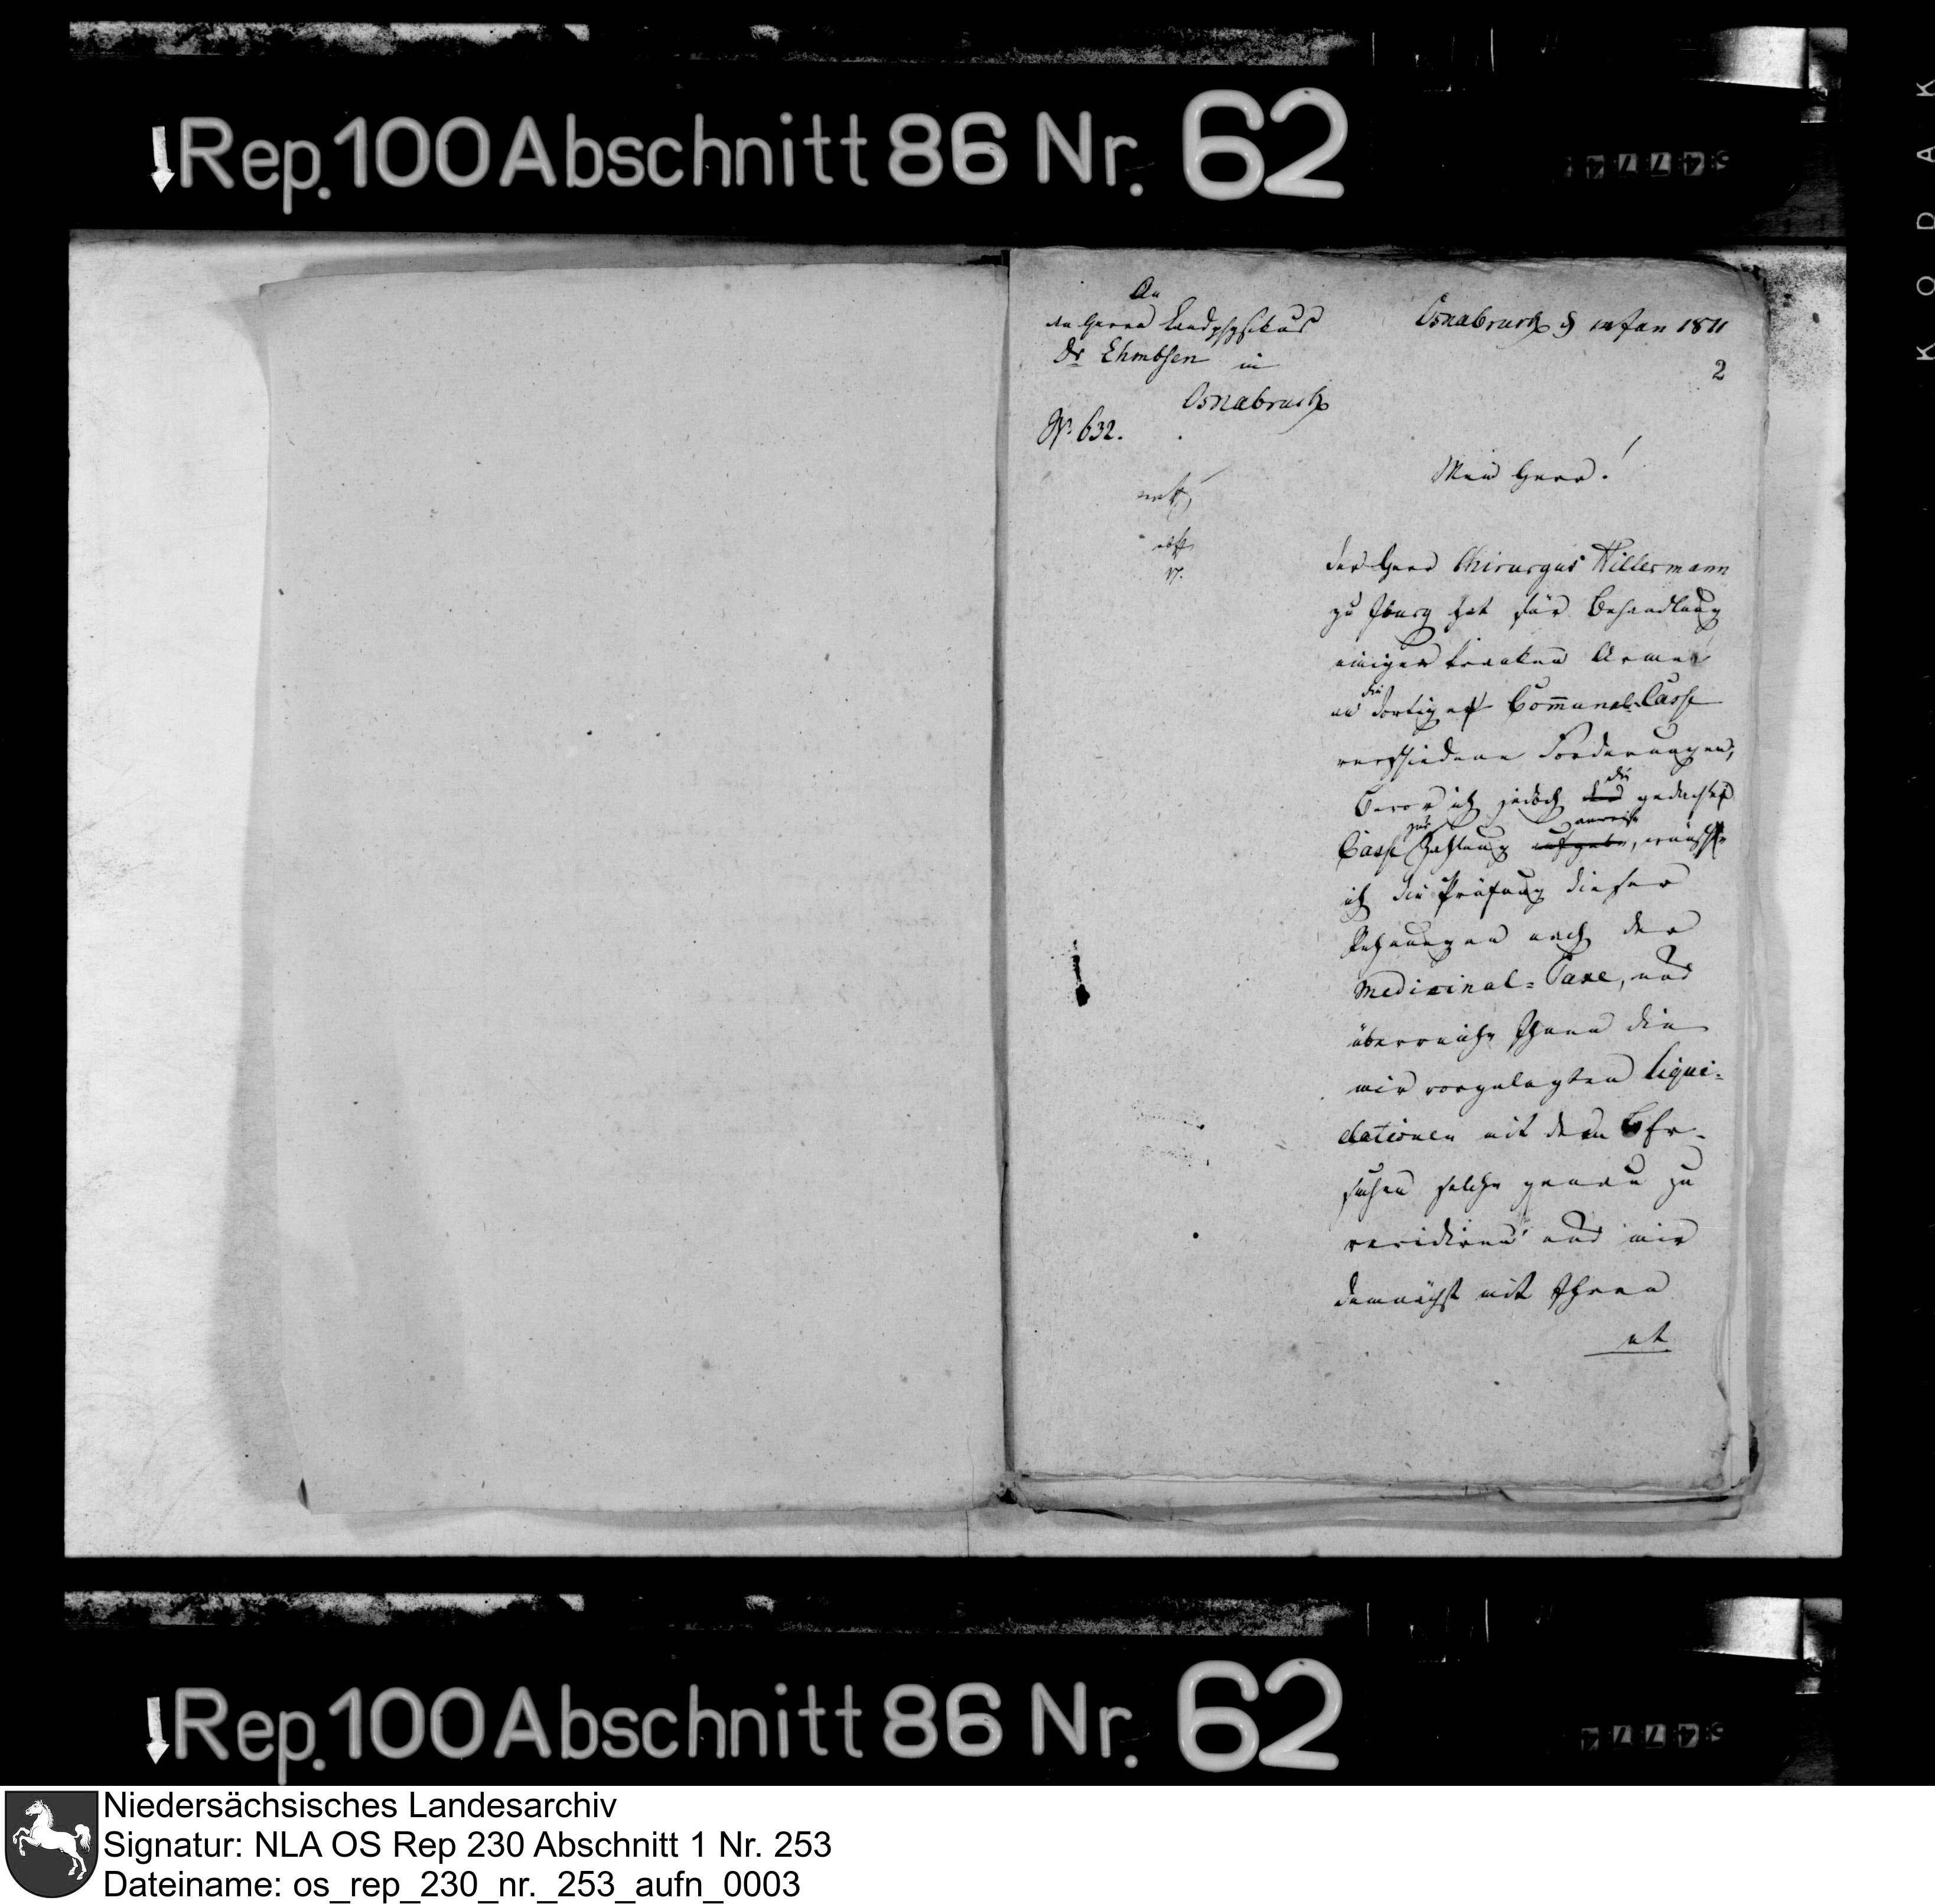 Rep. 100 Abschnitt 86 Nr. 62
KODAK
An
den Herrn Landphysikus
Dr Ehmbsen in
Osnabruck
No. 632.
Osnabruck d Jan 1811
2
Mein Herr!
Der Herr Chirurgus Hillermann
zu Iburg hat für Behandlung
einiger kranken Armen
an die dortige Communal-Casse
verschiedene Forderungen;
Bevor ich jedoch die gedachte
Casse zur Zahlung anweise, wünsche
ich die Prüfung dieser
Rechnungen nach der
Medicinal-Taxe, und
überreiche Ihnen die
mir vorgelegten Liqui-
dationen mit dem Er-
suchen solche genau zu
revidiren und mir
demnächst mit Ihren
Rep. 100 Abschnitt 86 Nr. 62
Niedersächsisches Landesarchiv
Signatur: NLA OS Rep 230 Abschnitt 1 Nr. 253
Dateiname: os_rep_230_nr._253_aufn_0003